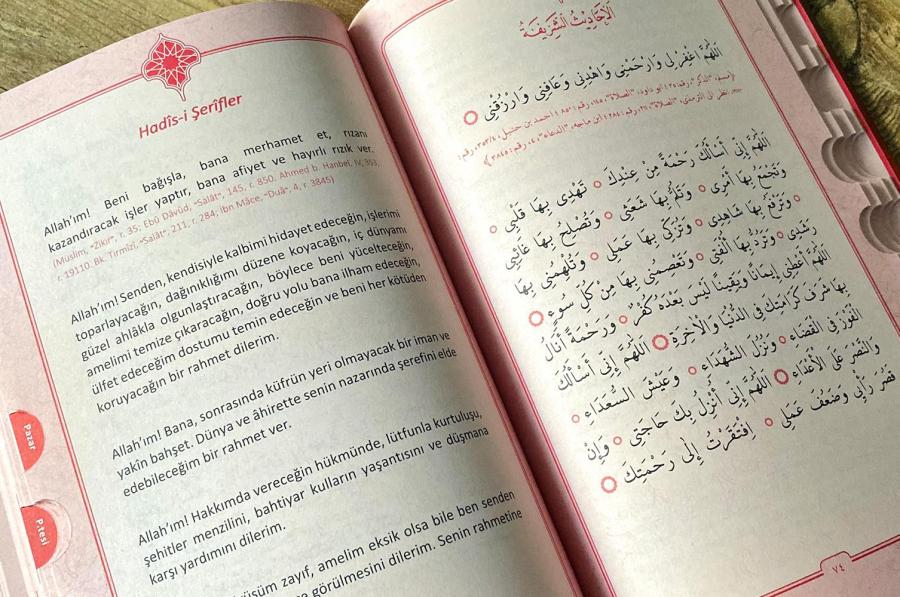 Hadîs-i Şerîfler
Allah'ım! Beni bağışla, bana merhamet et, rızanı
kazandıracak işler yaptır, bana afiyet ve hayırlı rızık ver.
(Müslim, "Zikir", r. 35; Ebû Dâvûd, "Salât", 145, r. 850. Ahmed b. Hanbel, IV, 353,
r. 19110. Bk. Tirmizî, "Salât", 211, r. 284; İbn Mâce, "Duâ", 4, r. 3845)
Allah'ım! Senden, kendisiyle kalbimi hidayet edeceğin, işlerimi
toparlayacağın, dağınıklığımı düzene koyacağın, iç dünyamı
güzel ahlâkla olgunlaştıracağın, böylece beni yücelteceğin,
amelimi temize çıkaracağın, doğru yolu bana ilham edeceğin,
ülfet edeceğim dostumu temin edeceğin ve beni her kötüden
koruyacağın bir rahmet dilerim.
Allah'ım! Bana, sonrasında küfrün yeri olmayacak bir iman ve
yakîn bahşet. Dünya ve âhirette senin nazarında şerefini elde
edebileceğim bir rahmet ver.
Allah'ım! Hakkımda vereceğin hükmünde, lütfunla kurtuluşu,
şehitler menzilini, bahtiyar kulların yaşantısını ve düşmana
karşı yardımını dilerim.
zayıf, amelim eksik olsa bile ben senden
görülmesini dilerim. Senin rahmetine
Pazar
P.tesi
اَلْاَحَادِيثُ الشَّرِيفَةُ
اَللّٰهُمَّ اغْفِرْ لِي وَارْحَمْنِي وَاهْدِنِي وَعَافِنِي وَارْزُقْنِي
اَللّٰهُمَّ اِنِّي أَسْأَلُكَ رَحْمَةً مِنْ عِنْدِكَ تَهْدِي بِهَا قَلْبِي
وَتَجْمَعُ بِهَا أَمْرِي وَتَلُمُّ بِهَا شَعَثِي وَتُصْلِحُ بِهَا غَائِبِي
وَتَرْفَعُ بِهَا شَاهِدِي وَتُزَكِّي بِهَا عَمَلِي وَتُلْهِمُنِي بِهَا
رُشْدِي وَتَرُدُّ بِهَا أُلْفَتِي وَتَعْصِمُنِي بِهَا مِنْ كُلِّ سُوءٍ
اَللّٰهُمَّ أَعْطِنِي إِيمَانًا وَيَقِينًا لَيْسَ بَعْدَهُ كُفْرٌ وَرَحْمَةً أَنَالُ
بِهَا شَرَفَ كَرَامَتِكَ فِي الدُّنْيَا وَالْآخِرَةِ اَللّٰهُمَّ إِنِّي أَسْأَلُكَ
الْفَوْزَ فِي الْقَضَاءِ وَنُزُلَ الشُّهَدَاءِ وَعَيْشَ السُّعَدَاءِ
وَالنَّصْرَ عَلَى الْأَعْدَاءِ اَللّٰهُمَّ إِنِّي أُنْزِلُ بِكَ حَاجَتِي وَإِنْ
قَصُرَ رَأْيِي وَضَعُفَ عَمَلِي اِفْتَقَرْتُ إِلَى رَحْمَتِكَ
٧٤